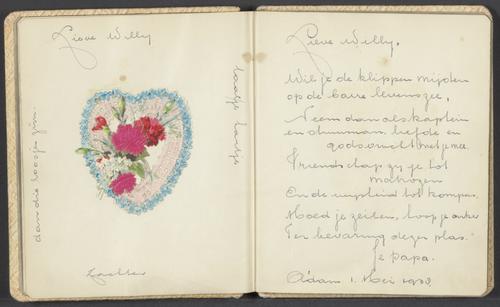 Lieve Willy
zachter
laatje hartje
dan die roosjes zijn.
Lieve Willy,
Wil je de klippen mijden
op de barre levenszee,
Neem dan als kaptein
en stuurman, liefde en
godsvrucht met je mee.
Vriendschap zij je tot
matroos
En de wijsheid tot kompas.
Hoed je zeilen, loop je anker
Ter bevaring dezer plas.
Je papa.
A'dam 1 Mei